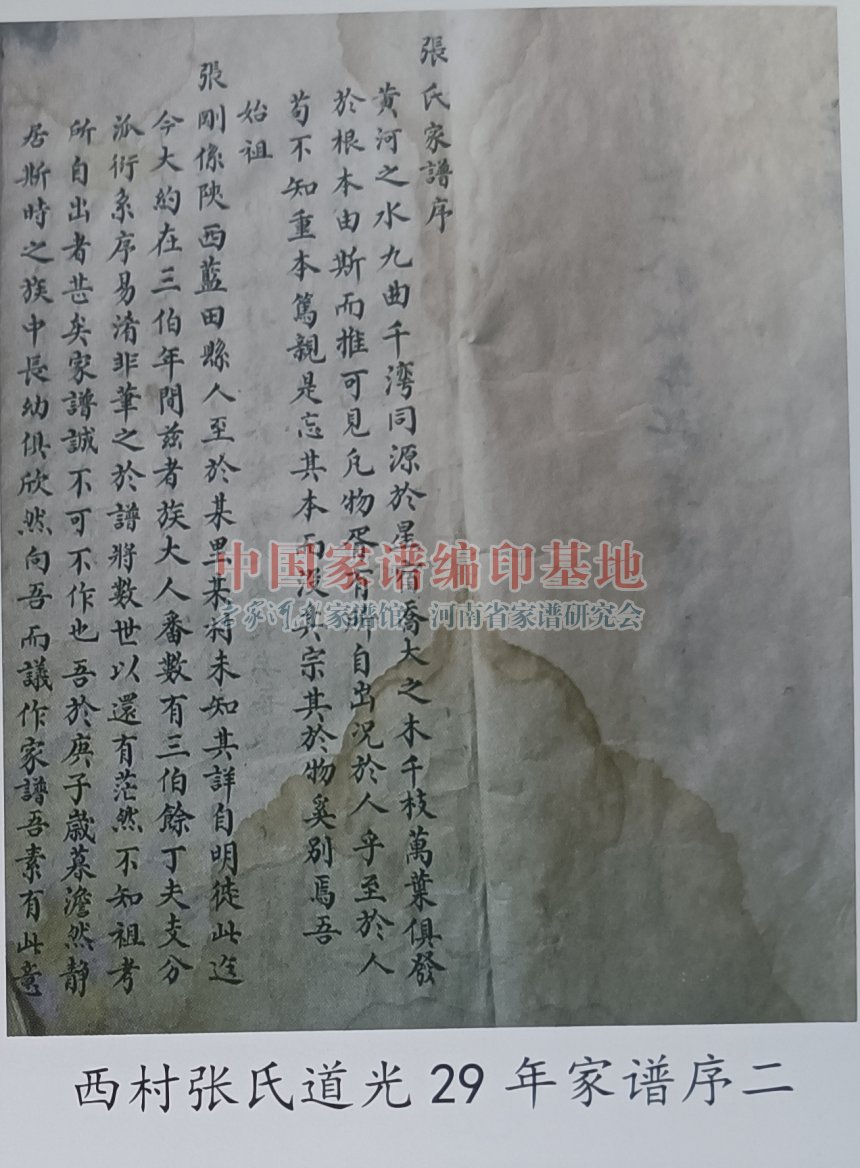 張氏家譜序
黄河之水九曲千湾同源於星宿喬大之木千枝萬葉俱發
於根本由斯而推可見凡物胥有所自出况於人乎至於人
苟不知重本篤親是忘其本而淡其宗其於物奚别焉吾
始祖
張剛係陝西藍田縣人至於某里某村未知其詳自明徙此迄
今大約在三伯年間兹者族大人番數有三伯餘丁夫支分
派衍系序易淆非筆之於譜將數世以還有茫然不知祖考
所自出者甚矣家譜誠不可不作也吾於庚子歲暮澹然靜
居斯時之族中長幼俱欣然向吾而議作家譜吾素有此意
中国家谱编印基地
家谱馆 河南省家谱研究会
西村张氏道光29年家谱序二